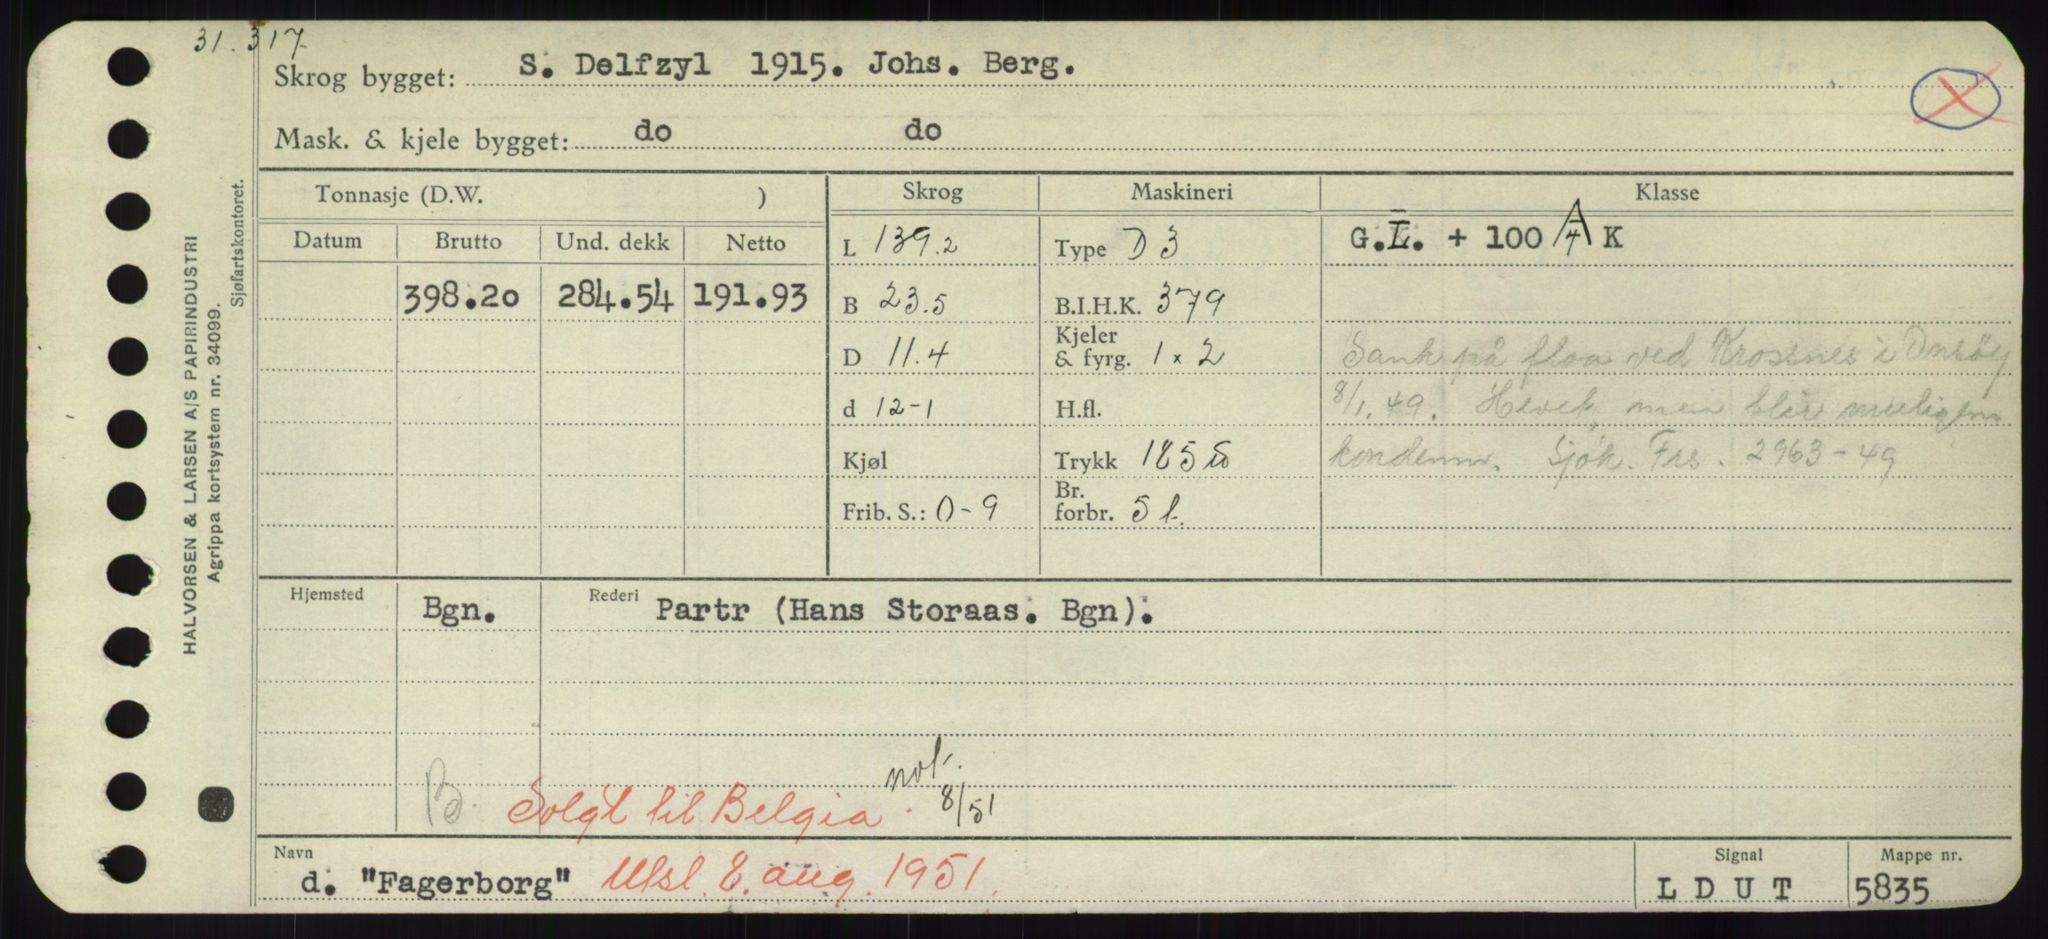 31.317
Skrog bygget: S. Delfzyl 1915. Johs. Berg.
Mask. & kjele bygget: do do
HALVORSEN & LARSEN A/S PAPIRINDUSTRI
Agrippa kortsystem nr. 34099.
Sjøfartskontoret.
Tonnasje (D.W. )
Skrog Maskineri Klasse
Datum Brutto Und. dekk Netto
398.20 284.54 191.93
L 139.2
B 23.5
D 11.4
d 12-1
Kjøl
Frib. S.: 0-9
Type D 3
B.I.H.K. 379
Kjeler
& fyrg. 1 x 2
H.fl.
Trykk 185
Br.
forbr. 5 t.
G.L. + 100 A/4 K
Sank på flaa ved Krossnes i Onsøy
8/1.49. Hevet, men blir muligens
kondemn. Sjøk. Frs. 2963-49
Hjemsted Bgn. Rederi Partr (Hans Storaas. Bgn).
B. Solgt til Belgia. not. 8/51
Navn
d. "Fagerborg" Utsl. 8. aug. 1951.
Signal
L D U T
Mappe nr.
5835